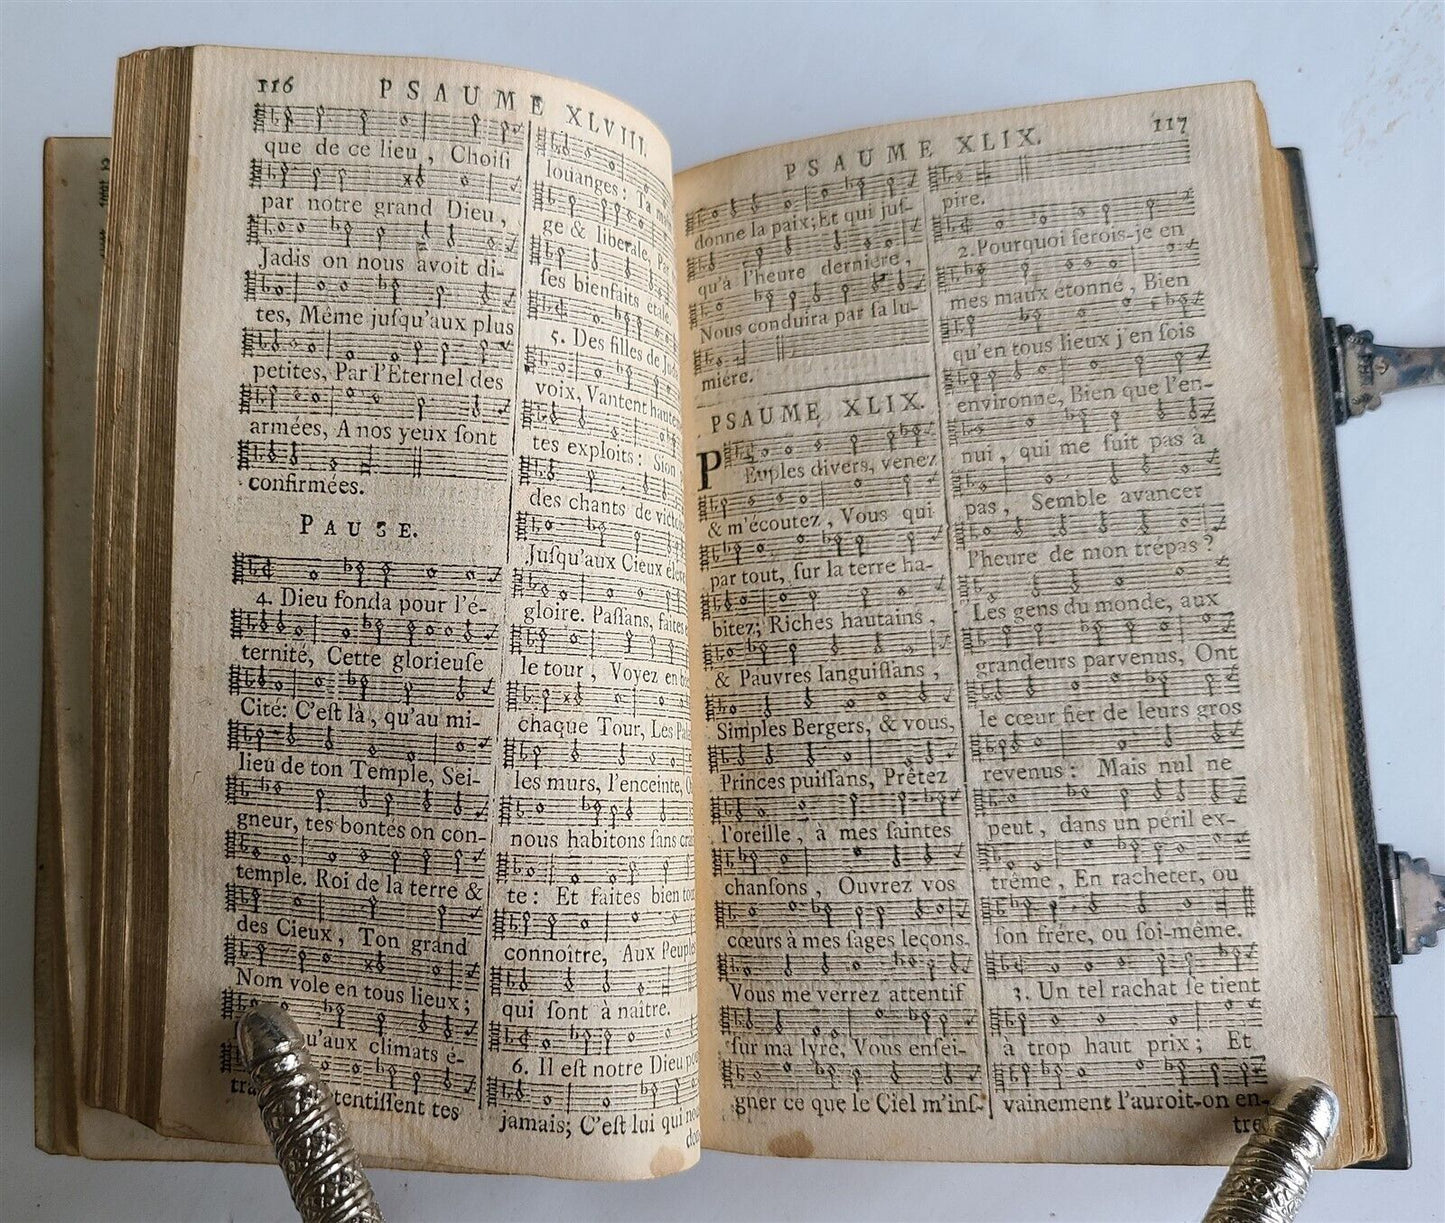 116 PSAUME XLVIII.
que de ce lieu, Choiſi
par notre grand Dieu,
Jadis on nous avoit di-
tes, Même juſqu'aux plus
petites, Par l'Eternel des
armées, A nos yeux ſont
confirmées.
PAUSE.
4. Dieu fonda pour l'é-
ternité, Cette glorieuſe
Cité: C'eſt là, qu'au mi-
lieu de ton Temple, Sei-
gneur, tes bontés on con-
temple. Roi de la terre &
des Cieux, Ton grand
Nom vole en tous lieux;
u'aux climats é-
tentiſſent tes
louanges: Ta
ge & liberale, Par
ſes bienfaits
5. Des filles de
voix, Vantent
tes exploits: Sion
des chants de
Juſqu'aux Cieux
gloire. Paſſans, faites
le tour, Voyez en
chaque Tour, Les
les murs, l'enceinte,
nous habitons ſans
te: Et faites bien
connoître, Aux
qui ſont à naître.
6. Il eſt notre Dieu
jamais; C'eſt lui qui
PSAUME XLIX. 117
donne la paix; Et qui juſ-
qu'à l'heure derniére,
Nous conduira par ſa lu-
miére.
PSAUME XLIX.
PEuples divers, venez
& m'écoutez, Vous qui
par tout, ſur la terre ha-
bitez; Riches hautains,
& Pauvres languiſſans,
Simples Bergers, & vous,
Princes puiſſans, Prêtez
l'oreille, à mes ſaintes
chanſons, Ouvrez vos
cœurs à mes ſages leçons.
Vous me verrez attentif
ſur ma lyre, Vous enſei-
gner ce que le Ciel m'inſ-
pire.
2. Pourquoi ſerois-je en
mes maux étonné, Bien
qu'en tous lieux j'en ſois
environne, Bien que l'en-
nui, qui me ſuit pas à
pas, Semble avancer
l'heure de mon trépas?
Les gens du monde, aux
grandeurs parvenus, Ont
le cœur fier de leurs gros
revenus: Mais nul ne
peut, dans un péril ex-
trême, En racheter, ou
ſon frére, ou ſoi-même.
3. Un tel rachat ſe tient
à trop haut prix; Et
vainement l'auroit-on en-
tre